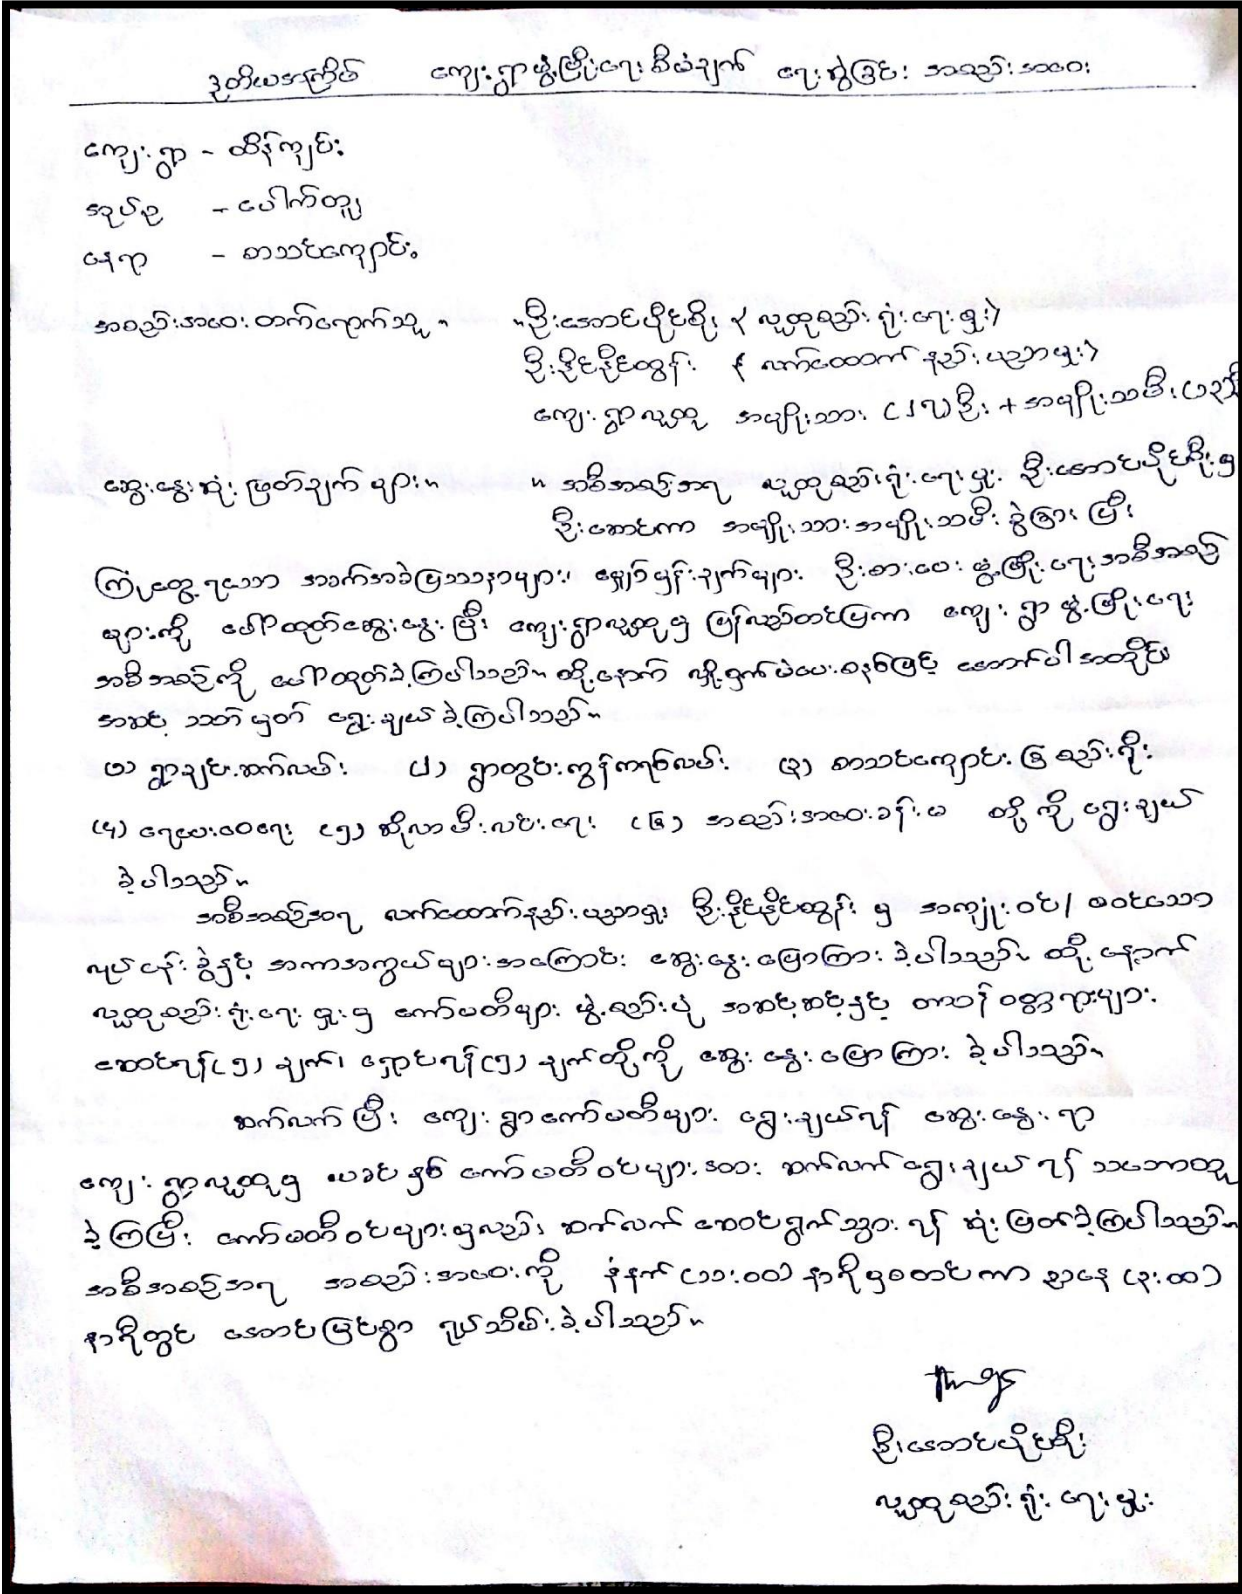 ဒုတိယအကြိမ် ကျေးရွာဖွံ့ဖြိုးရေးစီမံချက် ရေးဆွဲခြင်း အစည်းအဝေး
ကျေးရွာ - ထိန်ကျင်း
အုပ်စု - ပေါက်တူ
နေရာ - စာသင်ကျောင်း
အစည်းအဝေး တက်ရောက်သူ ။ ။ ဦးအောင်ပိုင်စိုး (လူထုစည်းရုံးရေးမှူး)
ဦးနိုင်နိုင်ထွန်း (လက်ထောက်နည်းပညာမှူး)
ကျေးရွာလူထု အမျိုးသား (၂၇)ဦး + အမျိုးသမီး
ဆွေးနွေးဆုံးဖြတ်ချက်များ ။ ။ အစီအစဉ်အရ လူထုစည်းရုံးရေးမှူး ဦးအောင်ပိုင်စိုးမှ
ဦးဆောင်ကာ အမျိုးသားအမျိုးသမီး ခွဲခြားပြီး
ကြုံတွေ့ရသော အခက်အခဲပြဿနာများ၊ မျှော်မှန်းချက်များ ဦးစားပေး ဖွံ့ဖြိုးရေးအစီအစဉ်
များကို ဖော်ထုတ်ဆွေးနွေးပြီး ကျေးရွာလူထုမှ ပြန်လည်တင်ပြကာ ကျေးရွာဖွံ့ဖြိုးရေး
အစီအစဉ်ကို ဖော်ထုတ်ခဲ့ကြပါသည်။ ထို့နောက် လျှို့ဝှက်မဲပေးစနစ်ဖြင့် အောက်ပါအတိုင်း
အဆင့်သတ်မှတ် ရွေးချယ်ခဲ့ကြပါသည်။
(၁) ရွာချင်းဆက်လမ်း (၂) ရွာတွင်းကွန်ကရစ်လမ်း (၃) စာသင်ကျောင်းခြံစည်းရိုး
(၄) ရေပေးဝေရေး (၅) ဆိုလာမီးလင်းရေး (၆) အစည်းအဝေးခန်းမ တို့ကို ရွေးချယ်
ခဲ့ပါသည်။
အစီအစဉ်အရ လက်ထောက်နည်းပညာမှူး ဦးနိုင်နိုင်ထွန်းမှ အကျုံးဝင်/မဝင်သော
လုပ်ငန်းခွဲနှင့် အကာအကွယ်များအကြောင်း ဆွေးနွေးပြောကြားခဲ့ပါသည်။ ထို့နောက်
လူထုစည်းရုံးရေးမှူးမှ ကော်မတီများ ဖွဲ့စည်းပုံ အဆင့်ဆင့်နှင့် တာဝန်ဝတ္တရားများ
ဆောင်ရန်(၅)ချက်၊ ရှောင်ရန်(၅)ချက်တို့ကို ဆွေးနွေးပြောကြားခဲ့ပါသည်။
ဆက်လက်ပြီး ကျေးရွာကော်မတီများ ရွေးချယ်ရန် ဆွေးနွေးရာ
ကျေးရွာလူထုမှ ယခင်နှစ် ကော်မတီဝင်များအား ဆက်လက်ရွေးချယ်ရန် သဘောတူ
ခဲ့ကြပြီး ကော်မတီဝင်များမှလည်း ဆက်လက်ဆောင်ရွက်သွားရန် ဆုံးဖြတ်ခဲ့ကြပါသည်။
အစီအစဉ်အရ အစည်းအဝေးကို နံနက် (၁၁:၀၀) နာရီမှစတင်ကာ ညနေ
နာရီတွင် အောင်မြင်စွာ ရုပ်သိမ်းခဲ့ပါသည်။
ဦးအောင်ပိုင်စိုး
လူထုစည်းရုံးရေးမှူး